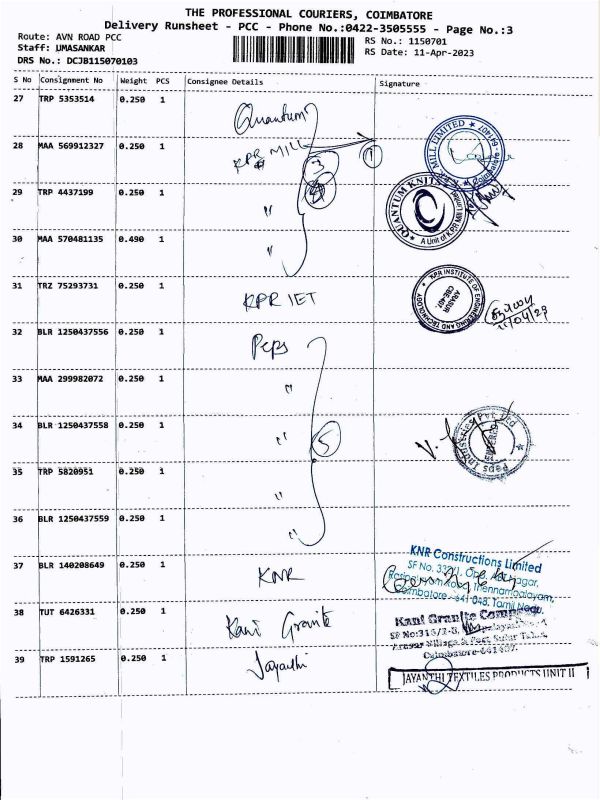 THE PROFESSIONAL COURIERS, COIMBATORE
Delivery Runsheet - PCC - Phone No.:0422-3505555 - Page No.:3
Route: AVN ROAD PCC
Staff: UMASANKAR
DRS No.: DCJB115070103
RS No.: 1150701
RS Date: 11-Apr-2023
S No Consignment No Weight PCS Consignee Details Signature
27 TRP 5353514 0.250 1 Quantum
28 MAA 569912327 0.250 1 KPR MILL 1
3
29 TRP 4437199 0.250 1 "
30 MAA 570481135 0.490 1 "
KPR MILL LIMITED
QUANTUM KNITS
A Unit of KPR Mill Limited
31 TRZ 75293731 0.250 1 KPR IET
KPR INSTITUTE OF ENGINEERING AND TECHNOLOGY
ARASUR
CBE-407.
11/04/23
32 BLR 1250437556 0.250 1 Peps
33 MAA 299982072 0.250 1 "
34 BLR 1250437558 0.250 1 " 5
Peps Industries Pvt Ltd
35 TRP 5820951 0.250 1 "
36 BLR 1250437559 0.250 1 "
37 BLR 140208649 0.250 1 KNR
KNR Constructions Limited
SF No. Opp. nagar,
Thennampalayam,
Coimbatore - 641 048. Tamil Nadu.
38 TUT 6426331 0.250 1 Kani Granite
Kani Granite Company
SF No:316/2-B,
Arasur Village & Post Sulur Taluk,
Coimbatore-641407.
39 TRP 1591265 0.250 1 Jayanthi
JAYANTHI TEXTILES PRODUCTS UNIT II